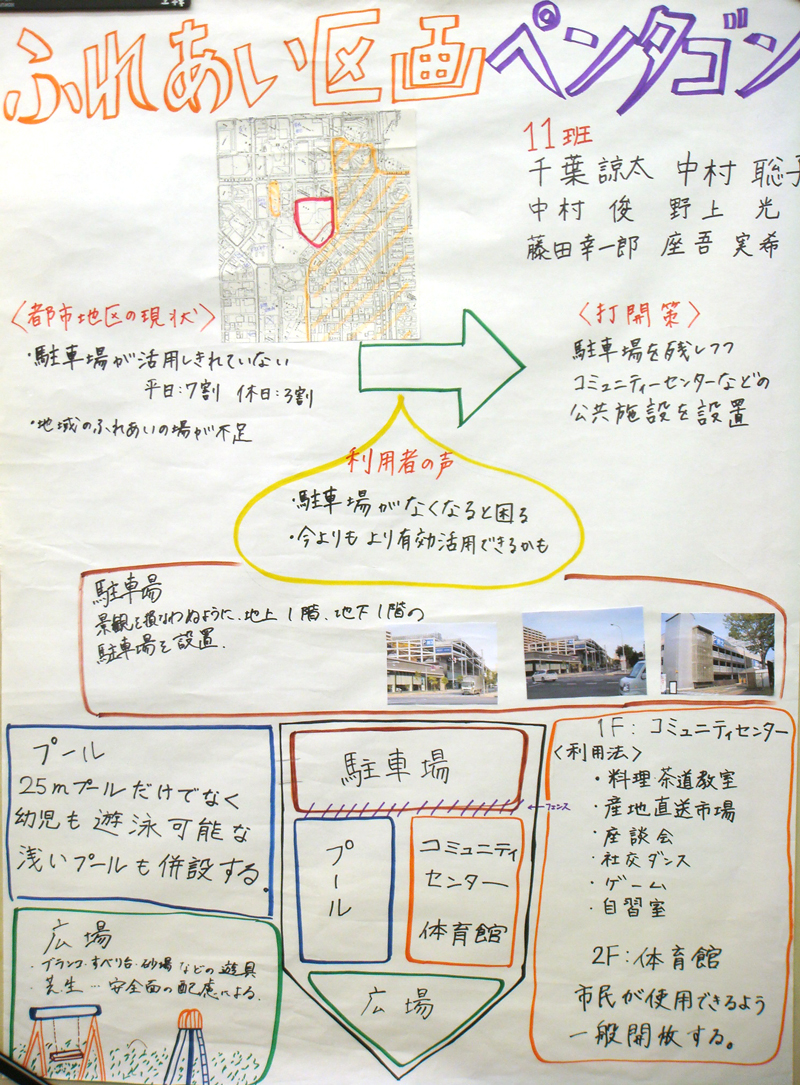 ふれあい区画ペンタゴン
11班
千葉諒太 中村 聡子
中村 俊 野上 光
藤田幸一郎 座吾 実希
〈都市地区の現状〉
・駐車場が活用しきれていない
平日:7割 休日:3割
・地域のふれあいの場が不足
〈打開策〉
駐車場を残しつつ
コミュニティーセンターなどの
公共施設を設置
利用者の声
・駐車場がなくなると困る
・今よりもより有効活用できるかも
駐車場
景観を損なわぬように、地上1階、地下1階の
駐車場を設置.
プール
25mプールだけでなく
幼児も遊泳可能な
浅いプールも併設する。
広場
・ブランコ・すべり台・砂場などの遊具
・芝生…安全面の配慮による.
駐車場
←フェンス
プール
コミュニティ
センター
体育館
広場
1F:コミュニティセンター
〈利用法〉
・料理・茶道教室
・産地直送市場
・座談会
・社交ダンス
・ゲーム
・自習室
2F:体育館
市民が使用できるよう
一般開放する。